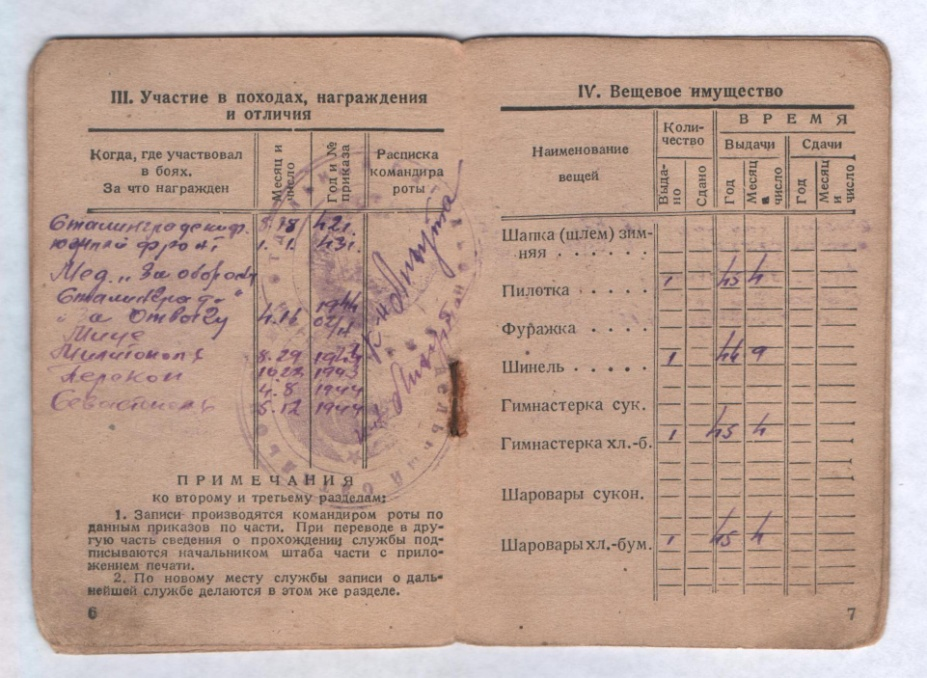 III. Участие в походах, награждения
и отличия
Когда, где участвовал
в боях.
За что награжден
Месяц и
число
Год и №
приказа
Расписка
командира
роты
Сталинградский ф. 42г.
южный фронт 1. 1. 43г.
Мед. „За оборону
Сталинград"
1944
„За Отвагу 4.16
8.29 1943
10.23 1943
4.8 1944
5.12 1944
ПРИМЕЧАНИЯ
ко второму и третьему разделам:
1. Записи производятся командиром роты по
данным приказов по части. При переводе в дру-
гую часть сведения о прохождении службы под-
писываются начальником штаба части с прило-
жением печати.
2. По новому месту службы записи о даль-
нейшей службе делаются в этом же разделе.
6
IV. Вещевое имущество
Наименование
вещей
Коли-
чество
ВРЕМЯ
Выдачи
Сдачи
Выда-
но
Сдано
Год
Месяц
и
число
Год
Месяц
и
число
Шапка (шлем) зим-
няя . . . . . .
Пилотка . . . . . 1 45 4
Фуражка . . . .
Шинель . . . . . 1 44 9
Гимнастерка сук.
Гимнастерка хл.-б. 1 45 4
Шаровары сукон.
Шаровары хл.-бум. 1 45 4
7